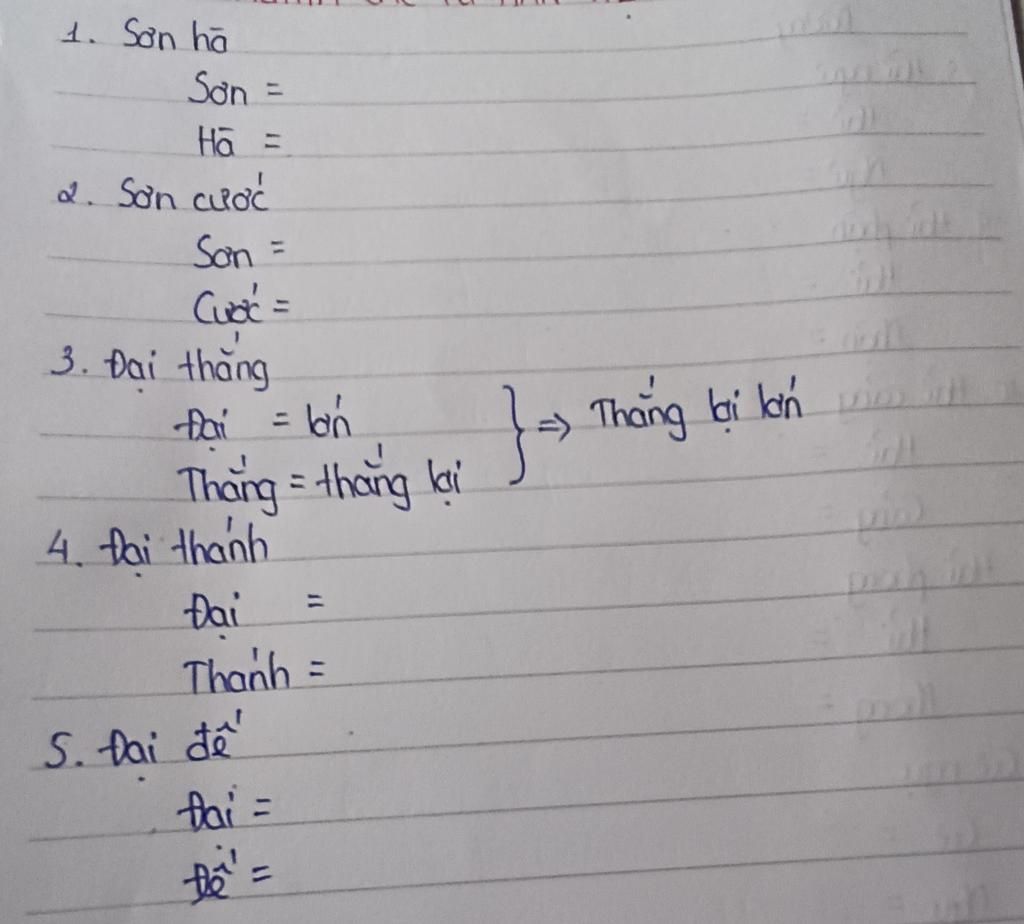 1. Sơn hà
Sơn =
Hà =
2. Sơn cước
Sơn =
Cước =
3. Đại thắng
Đại = lớn
Thắng = thắng lại
} => Thắng lại lớn
4. Đại thánh
Đại =
Thánh =
5. Đại đế
Đại =
Đế =